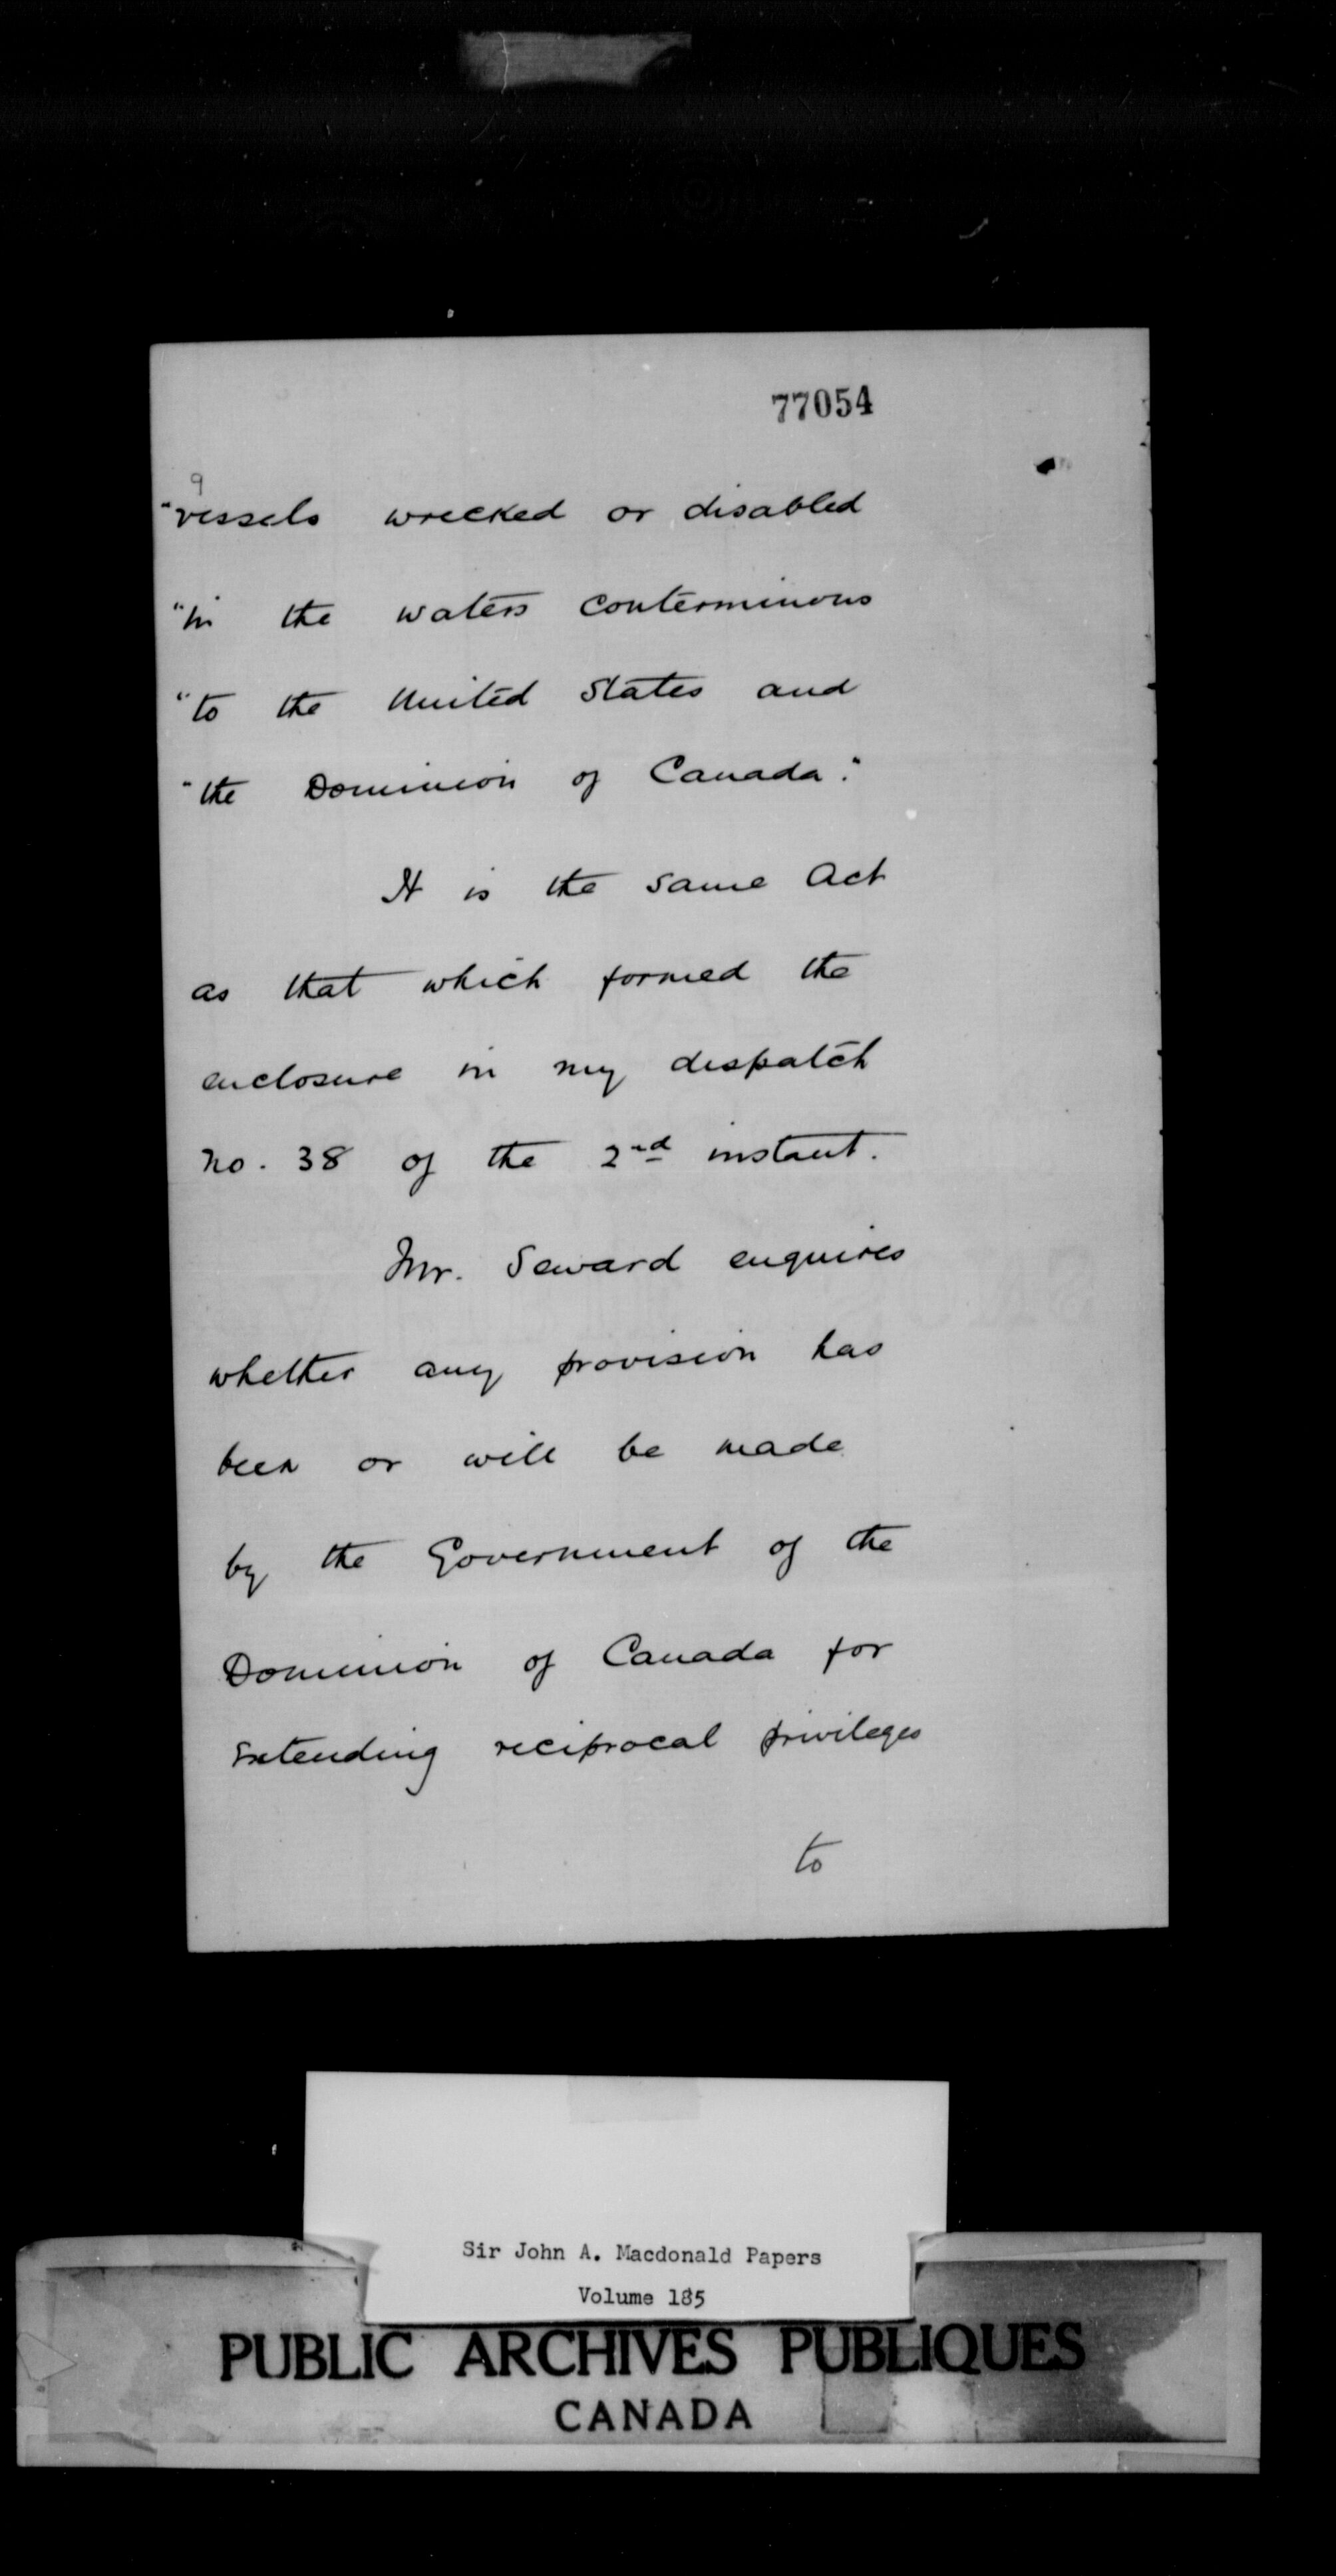 77054
9
"vessels wrecked or disabled
"in the waters conterminous
"to the United States and
"the Dominion of Canada."
It is the same Act
as that which formed the
enclosure in my dispatch
No. 38 of the 2nd instant.
Mr. Seward enquires
whether any provision has
been or will be made
by the Government of the
Dominion of Canada for
extending reciprocal privileges
to
Sir John A. Macdonald Papers
Volume 185
PUBLIC ARCHIVES PUBLIQUES
CANADA